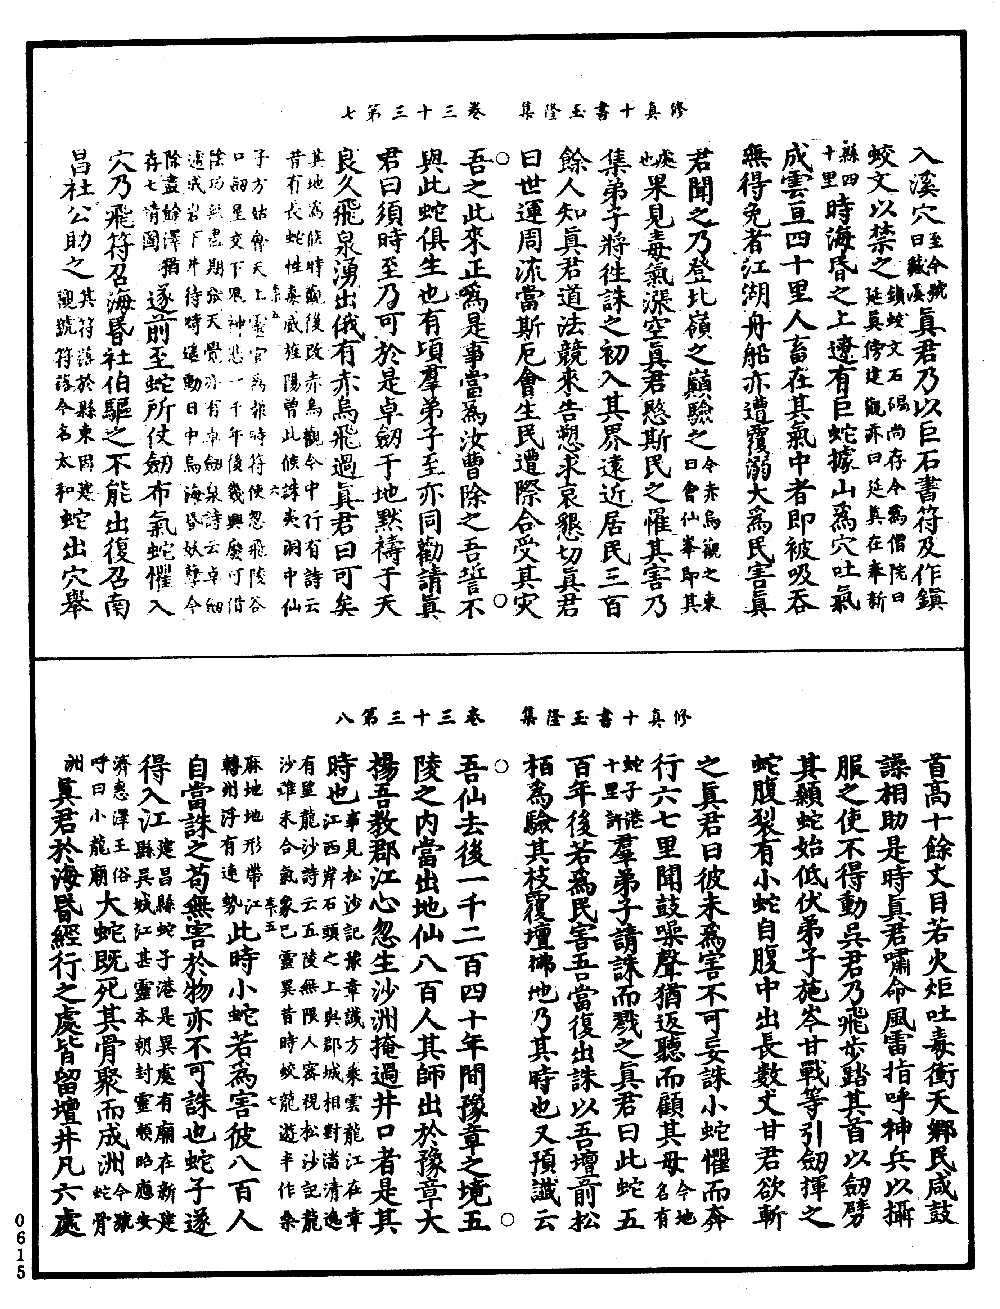 修真十書玉隆集　卷三十三第七
入溪穴至今號曰藏溪眞君乃以巨石書符及作鎮
蛟文以禁之鎮蛟文石碣尚存今爲僧院曰延眞傍建觀亦曰延眞在奉新
縣四十里時海昏之上遼有巨蛇據山爲穴吐氣
成雲亘四十里人畜在其氣中者即被吸吞
無得免者江湖舟船亦遭覆溺大爲民害眞
君聞之乃登北嶺之巔驗之今赤烏觀之東曰會仙峯即其
處也果見毒氣漲空眞君愍斯民之罹其害乃
集弟子將往誅之初入其界遠近居民三百
餘人知眞君道法競來告愬求哀懇切眞君
曰世運周流當斯厄會生民遭際合受其灾
吾之此來正爲是事當爲汝曹除之吾誓不
與此蛇俱生也有頃羣弟子至亦同勸請眞
君曰須時至乃可於是卓劒于地默禱于天
良久飛泉湧出俄有赤烏飛過眞君曰可矣
其地爲候時觀後改赤烏觀今中行有詩云
昔有長蛇性毒威旌陽曾此候誅夷洞中仙
子方姑會天上靈官爲報時符使忽飛陵谷
口劒星交下鬼神悲一千年後幾興廢可借
陰功盡期張天覺亦有卓劒泉詩云卓劒
遺成岩下井待時還動日中烏海昏妖孽今
除盡餘澤猶存七靖圖遂前至蛇所仗劒布氣蛇懼入
穴乃飛符召海昏社伯驅之不能出復召南
昌社公助之其符落於縣東因建觀號符落今名太和蛇出穴舉
修真十書玉隆集　卷三十三第八
首高十餘丈目若火炬吐毒衝天鄉民咸鼓
譟相助是時眞君嘯命風雷指呼神兵以攝
服之使不得動吳君乃飛步踏其首以劒劈
其顙蛇始低伏弟子施岑甘戰等引劒揮之
蛇腹裂有小蛇自腹中出長數丈甘君欲斬
之眞君曰彼未爲害不可妄誅小蛇懼而奔
行六七里聞鼓噪聲猶返聽而顧其母今地名有
蛇子港十里許羣弟子請誅而戮之眞君曰此蛇五
百年後若爲民害吾當復出誅以吾壇前松
栢爲驗其枝覆壇拂地乃其時也又預讖云
吾仙去後一千二百四十年間豫章之境五
陵之内當出地仙八百人其師出於豫章大
揚吾教郡江心忽生沙洲掩過井口者是其
時也事見松沙記豫章讖方乘雲龍江在章
江西岸石頭之上與郡城相對潘清逸
有望龍沙詩云五陵無限人密視松沙記龍
沙雖未合氣象已靈異昔時蛟龍遊半作桑
麻地地形帶江轉州浮有遠勢此時小蛇若爲害彼八百人
自當誅之苟無害於物亦不可誅也蛇子遂
得入江建昌縣蛇子港是異處有廟在新建
縣吳城江甚靈本朝封靈順昭應安
濟惠澤王俗呼曰小龍廟大蛇既死其骨聚而成洲今號蛇骨
洲眞君於海昏經行之處皆留壇井凡六處
0615